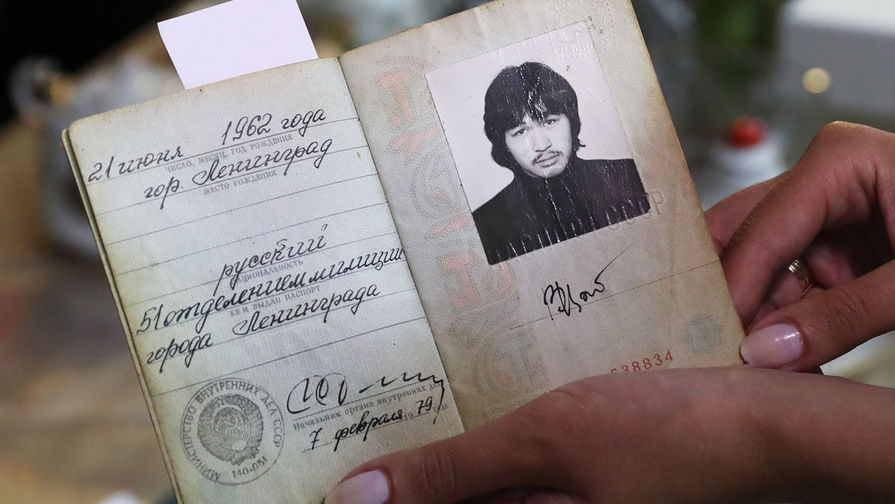 21 июня 1962 года
ЧИСЛО, МЕСЯЦ, ГОД РОЖДЕНИЯ
гор. Ленинград
МЕСТО РОЖДЕНИЯ
русский
НАЦИОНАЛЬНОСТЬ
51 отделением милиции
КЕМ ВЫДАН ПАСПОРТ
города Ленинграда
Начальник органа внутренних дел
7 февраля 1979 года
МИНИСТЕРСТВО ВНУТРЕННИХ ДЕЛ СССР
538834